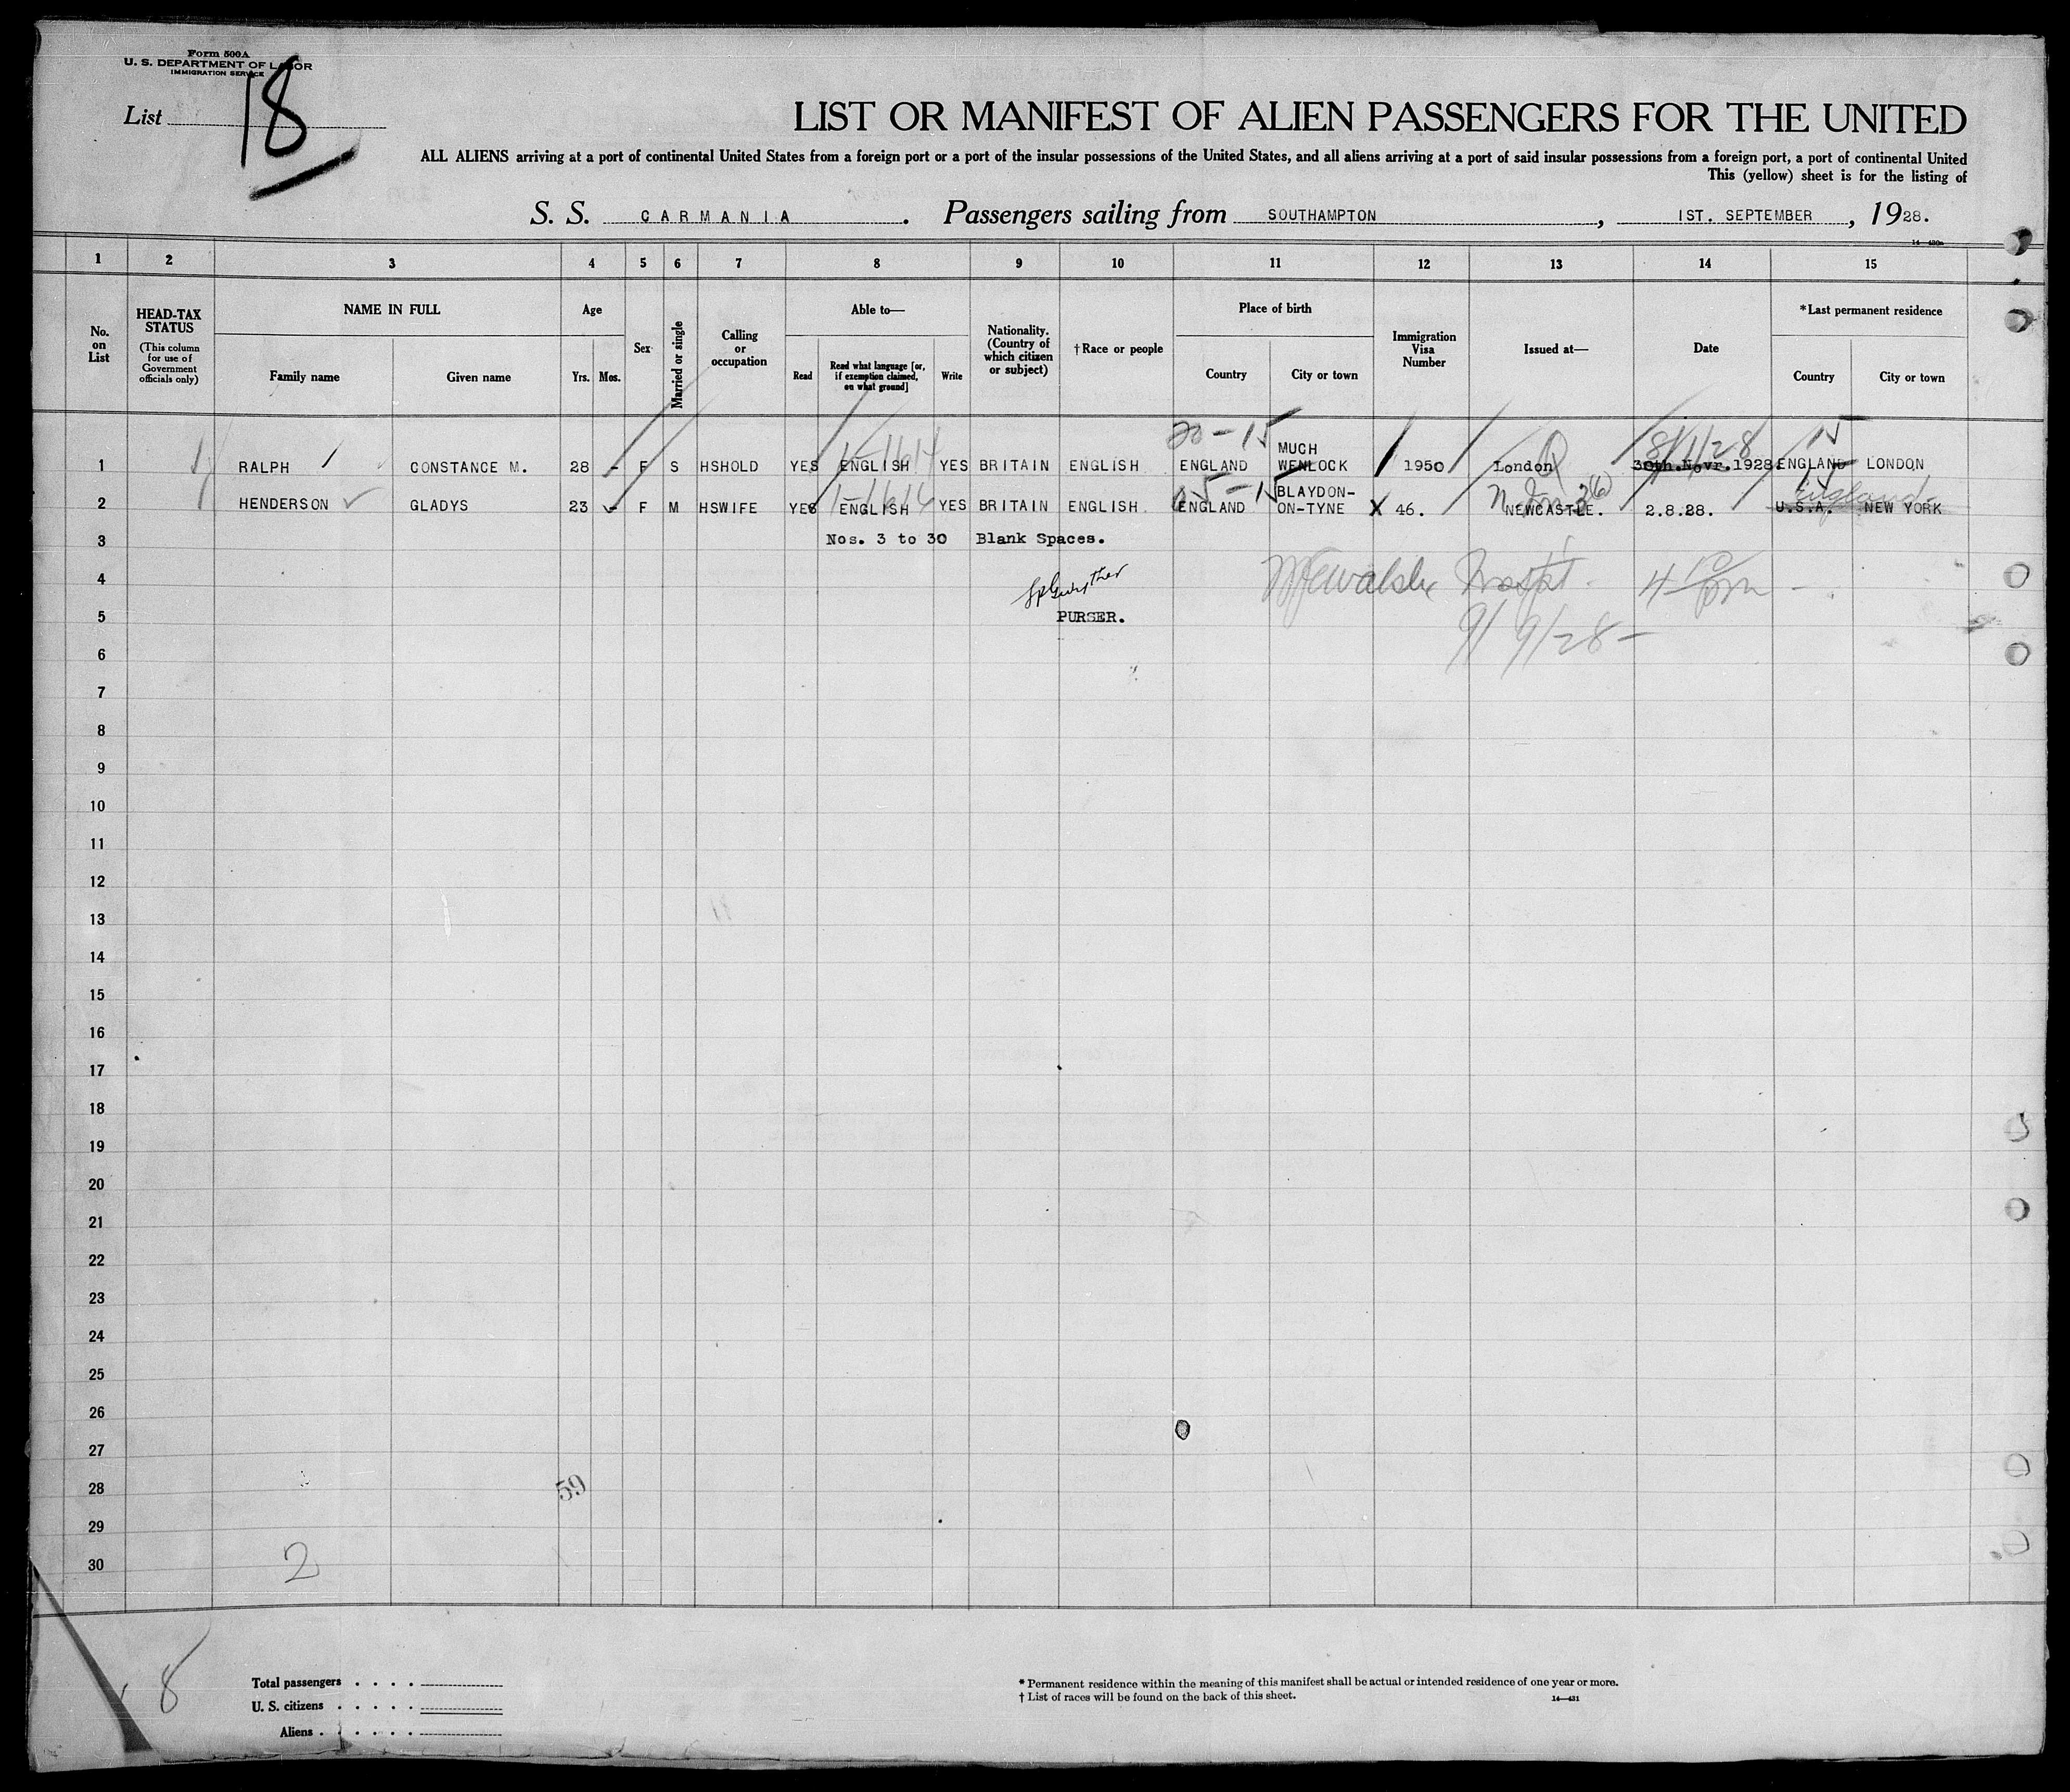 Form 500A
U. S. DEPARTMENT OF LABOR
IMMIGRATION SERVICE
List 18
LIST OR MANIFEST OF ALIEN PASSENGERS FOR THE UNITED
ALL ALIENS arriving at a port of continental United States from a foreign port or a port of the insular possessions of the United States, and all aliens arriving at a port of said insular possessions from a foreign port, a port of continental United
This (yellow) sheet is for the listing of
S. S. CARMANIA. Passengers sailing from SOUTHAMPTON, 1ST. SEPTEMBER, 1928.
14—430a
1 2 3 4 5 6 7 8 9 10 11 12 13 14 15
No. on List
HEAD-TAX STATUS
(This column for use of Government officials only)
NAME IN FULL
Family name Given name
Age
Yrs. Mos.
Sex
Married or single
Calling or occupation
Able to—
Read Read what language [or, if exemption claimed, on what ground] Write
Nationality. (Country of which citizen or subject)
† Race or people
Place of birth
Country City or town
Immigration Visa Number
Issued at—
Date
* Last permanent residence
Country City or town
20-15 8/1/28 15
1 RALPH CONSTANCE M. 28 - F S HSHOLD YES ENGLISH YES BRITAIN ENGLISH ENGLAND MUCH WENLOCK 1950 London 30th.Novr.1928 ENGLAND LONDON
15-15 England
2 HENDERSON GLADYS 23 - F M HSWIFE YES ENGLISH YES BRITAIN ENGLISH ENGLAND BLAYDON-ON-TYNE X 46. NEWCASTLE. 2.8.28. U.S.A. NEW YORK
3 Nos. 3 to 30 Blank Spaces.
4
5 PURSER.
9/9/28-
6
7
8
9
10
11
12
13
14
15
16
17
18
19
20
21
22
23
24
25
26
27
28
59
29
30
2
8
Total passengers . . . .
U. S. citizens . . . . .
Aliens . . . . . .
* Permanent residence within the meaning of this manifest shall be actual or intended residence of one year or more.
† List of races will be found on the back of this sheet.
14—431